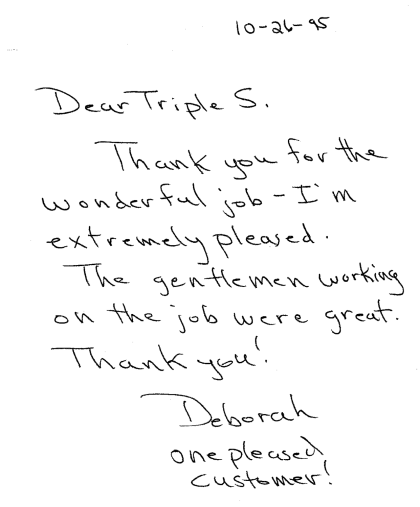 10-26-95
Dear Triple S.
Thank you for the
wonderful job - I'm
extremely pleased.
The gentlemen working
on the job were great.
Thank you!
Deborah
one pleased
customer!